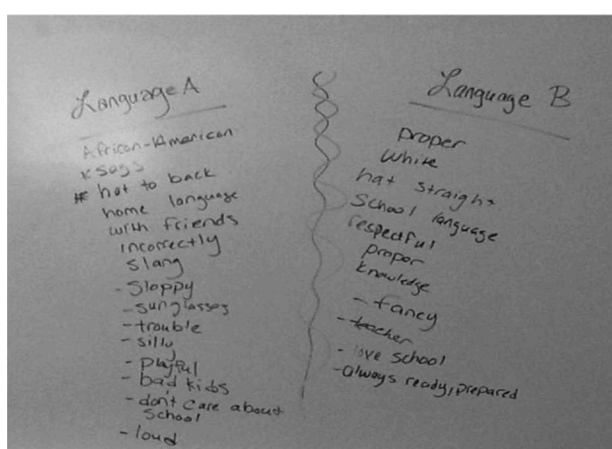 Language A
African-American
# hat to back
home language
with friends
incorrectly
slang
- Sloppy
- sunglasses
- trouble
- silly
- playful
- bad kids
- don't care about
school
- loud
Language B
proper
white
hat straight
School language
respectful
proper
knowledge
- fancy
- teacher
- love school
- always ready, prepared